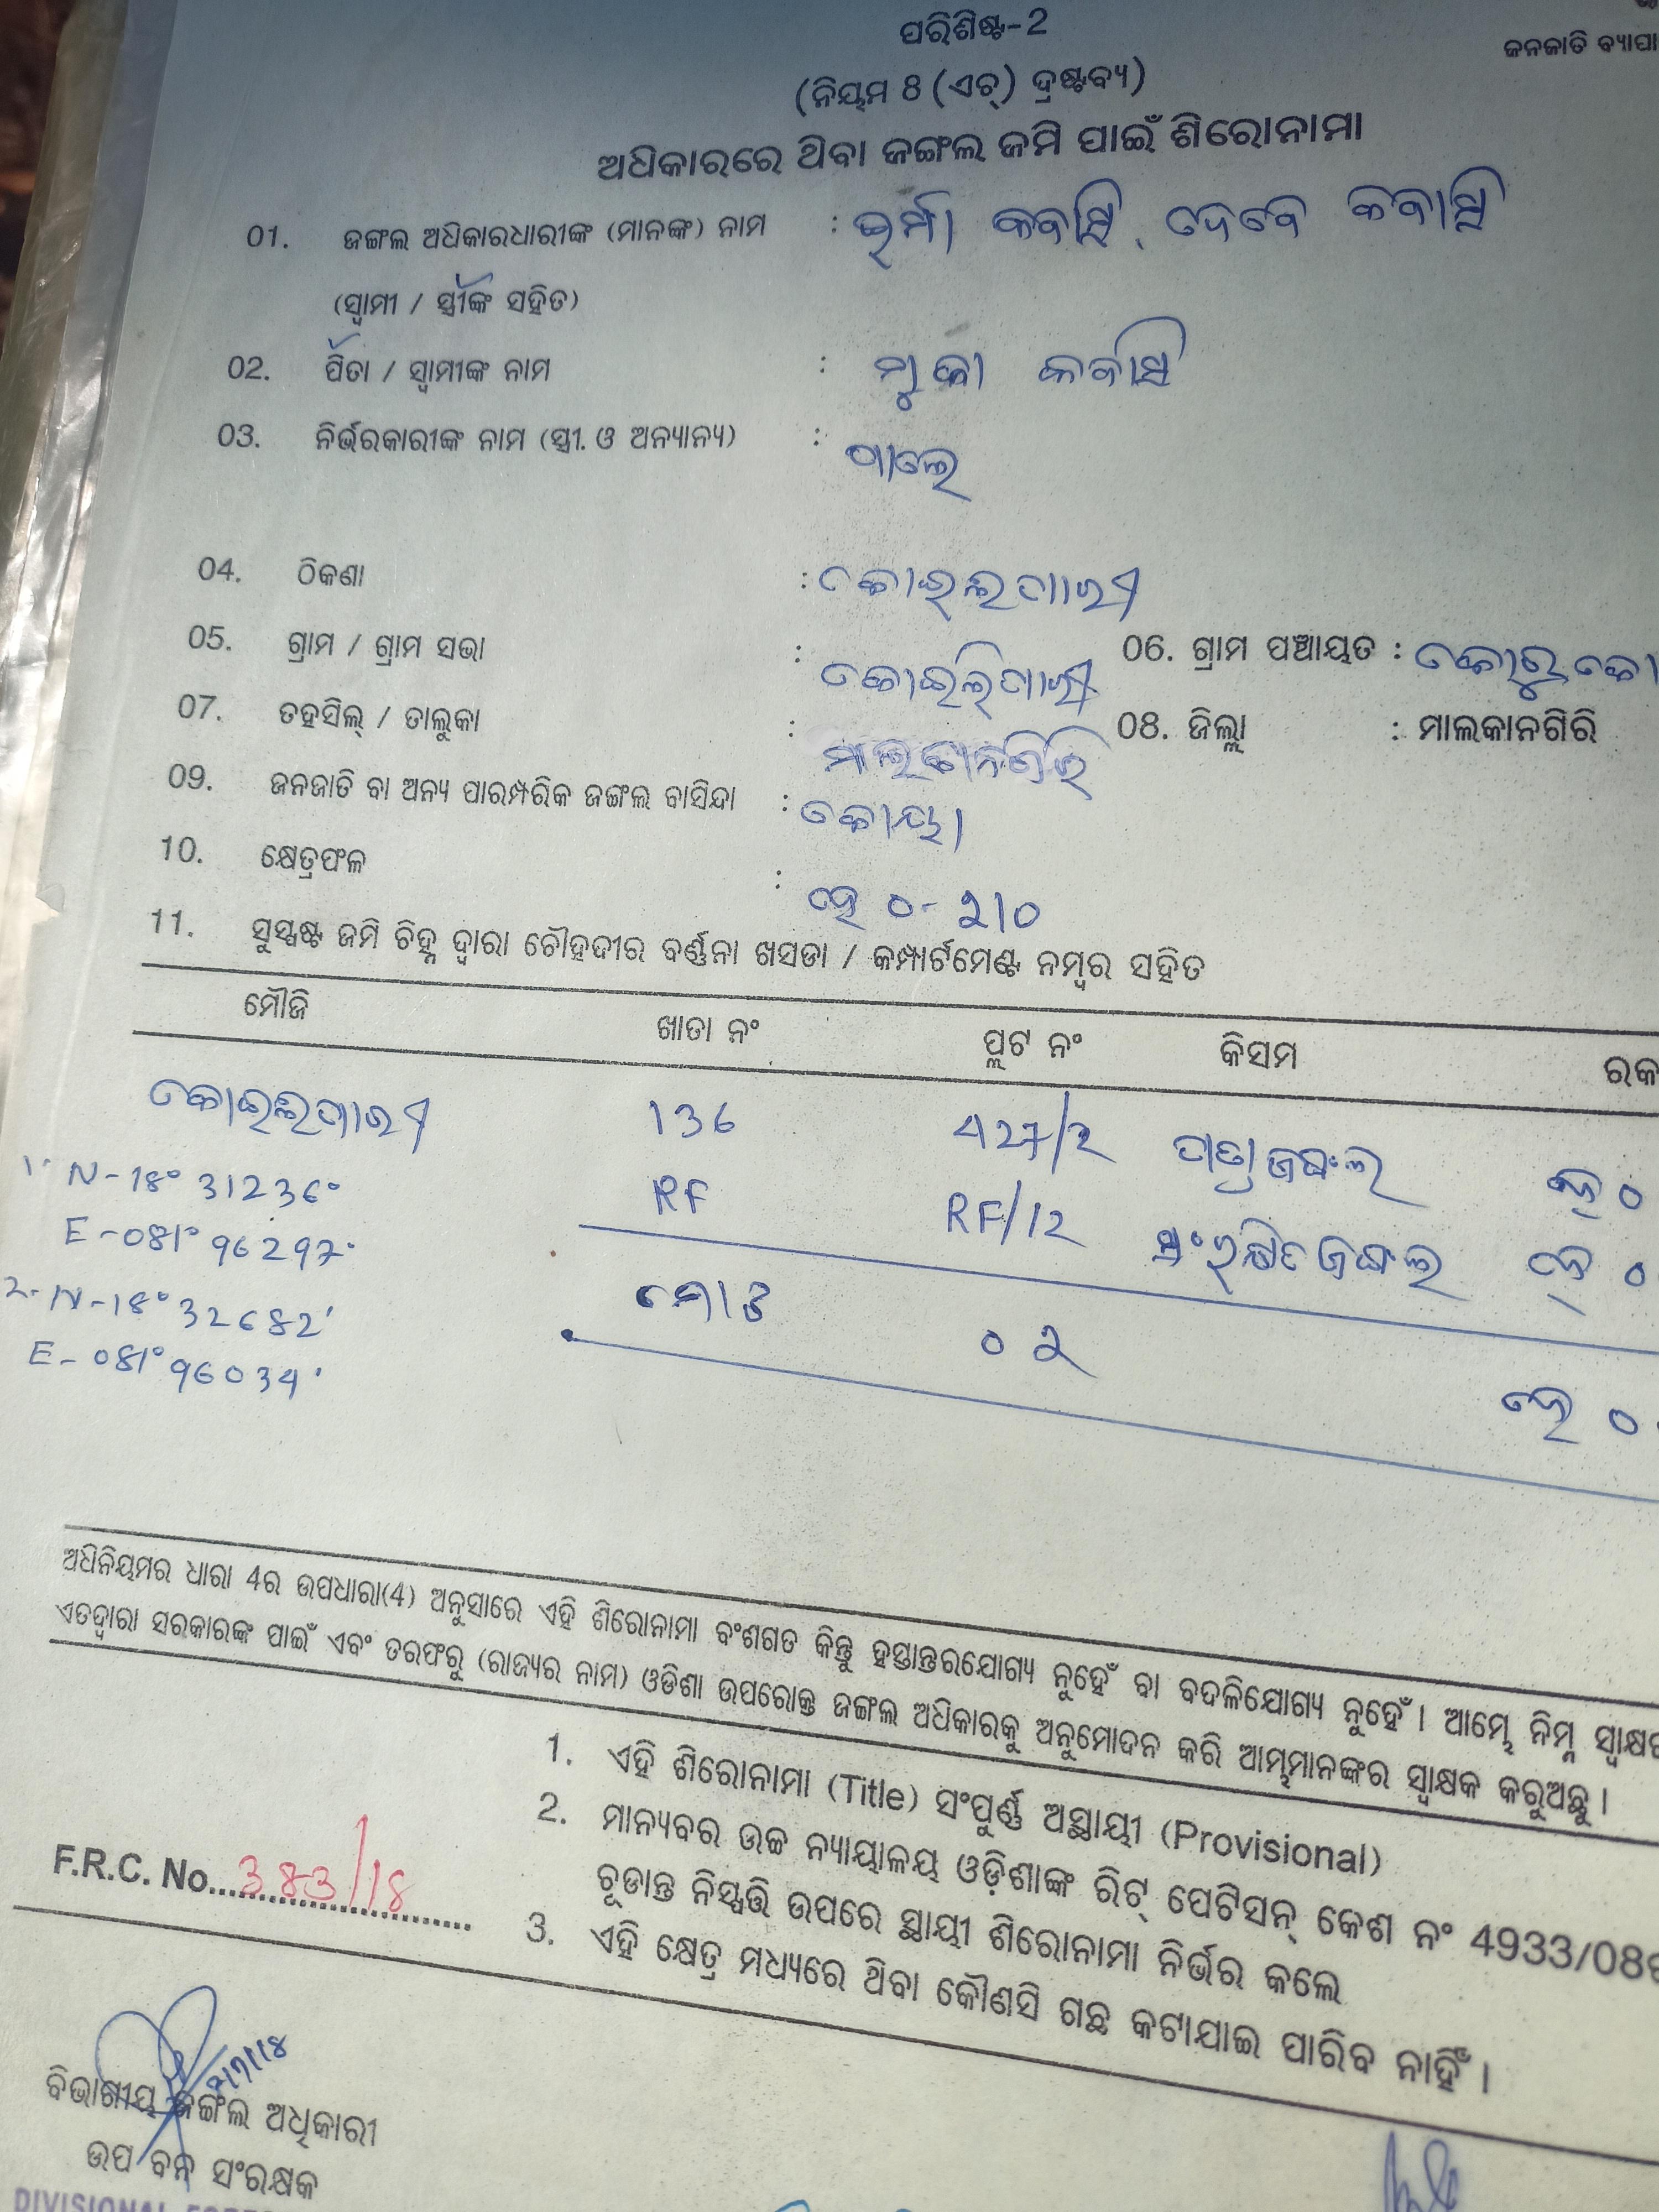 ପରିଶିଷ୍ଟ-2
ଜନଜାତି ବ୍ୟାପା
(ନିୟମ ୫ (ଏଚ୍) ଦ୍ରଷ୍ଟବ୍ୟ)
ଅଧିକାରରେ ଥିବା ଜଙ୍ଗଲ ଜମି ପାଇଁ ଶିରୋନାମା
01. ଜଙ୍ଗଲ ଅଧିକାରଧାରୀଙ୍କ (ମାନଙ୍କ) ନାମ : ଇର୍ମା କବାସି, ଦେବେ କବାସି
(ସ୍ଵାମୀ / ସ୍ତ୍ରୀଙ୍କ ସହିତ)
02. ପିତା / ସ୍ଵାମୀଙ୍କ ନାମ : କବାସି
03. ନିର୍ଭରକାରୀଙ୍କ ନାମ (ସ୍ତ୍ରୀ. ଓ ଅନ୍ୟାନ୍ୟ) : ପାଲେ
04. ଠିକଣା :
05. ଗ୍ରାମ / ଗ୍ରାମ ସଭା : 06. ଗ୍ରାମ ପଞ୍ଚାୟତ : କୋରୁକୋ
07. ତହସିଲ୍ / ତାଲୁକା : ମାଲକାନଗିରି 08. ଜିଲ୍ଲା : ମାଲକାନଗିରି
09. ଜନଜାତି ବା ଅନ୍ୟ ପାରମ୍ପରିକ ଜଙ୍ଗଲ ବାସିନ୍ଦା : କୋୟା
10. କ୍ଷେତ୍ରଫଳ : ହେ ୦-୨୧୦
11. ସୁସ୍ପଷ୍ଟ ଜମି ଚିହ୍ନ ଦ୍ଵାରା ଚୌହଦୀର ବର୍ଣ୍ଣନା ଖସଡା / କମ୍ପାର୍ଟମେଣ୍ଟ ନମ୍ବର ସହିତ
ମୌଜି ଖାତା ନଂ ପ୍ଲଟ ନଂ କିସମ ରକ
136 427/2 ଜଙ୍ଗଲ ହେ ୦
1. N-18° 31236°
RF RF/12 ସଂରକ୍ଷିତ ଜଙ୍ଗଲ ହେ ୦
E-081° 96297'
2. N-18° 32682'
ମୋଟ ୦୨ ହେ ୦
E-081° 96034'
ଅଧିନିୟମର ଧାରା 4ର ଉପଧାରା(4) ଅନୁସାରେ ଏହି ଶିରୋନାମା ବଂଶଗତ କିନ୍ତୁ ହସ୍ତାନ୍ତରଯୋଗ୍ୟ ନୁହେଁ ବା ବଦଳିଯୋଗ୍ୟ ନୁହେଁ । ଆମ୍ଭେ ନିମ୍ନ ସ୍ୱାକ୍ଷର
ଏତଦ୍ୱାରା ସରକାରଙ୍କ ପାଇଁ ଏବଂ ତରଫରୁ (ରାଜ୍ୟର ନାମ) ଓଡିଶା ଉପରୋକ୍ତ ଜଙ୍ଗଲ ଅଧିକାରକୁ ଅନୁମୋଦନ କରି ଆମ୍ଭମାନଙ୍କର ସ୍ୱାକ୍ଷକ କରୁଅଛୁ ।
1. ଏହି ଶିରୋନାମା (Title) ସଂପୂର୍ଣ୍ଣ ଅସ୍ଥାୟୀ (Provisional)
2. ମାନ୍ୟବର ଉଚ୍ଚ ନ୍ୟାୟାଳୟ ଓଡ଼ିଶାଙ୍କ ରିଟ୍ ପେଟିସନ୍ କେଶ ନଂ 4933/08
ଚୂଡାନ୍ତ ନିସ୍ପତ୍ତି ଉପରେ ସ୍ଥାୟୀ ଶିରୋନାମା ନିର୍ଭର କଲେ
3. ଏହି କ୍ଷେତ୍ର ମଧ୍ୟରେ ଥିବା କୌଣସି ଗଛ କଟାଯାଇ ପାରିବ ନାହିଁ ।
F.R.C. No. 383/18
ବିଭାଗୀୟ ଜଙ୍ଗଲ ଅଧିକାରୀ
ଉପ ବନ ସଂରକ୍ଷକ
DIVISIONAL